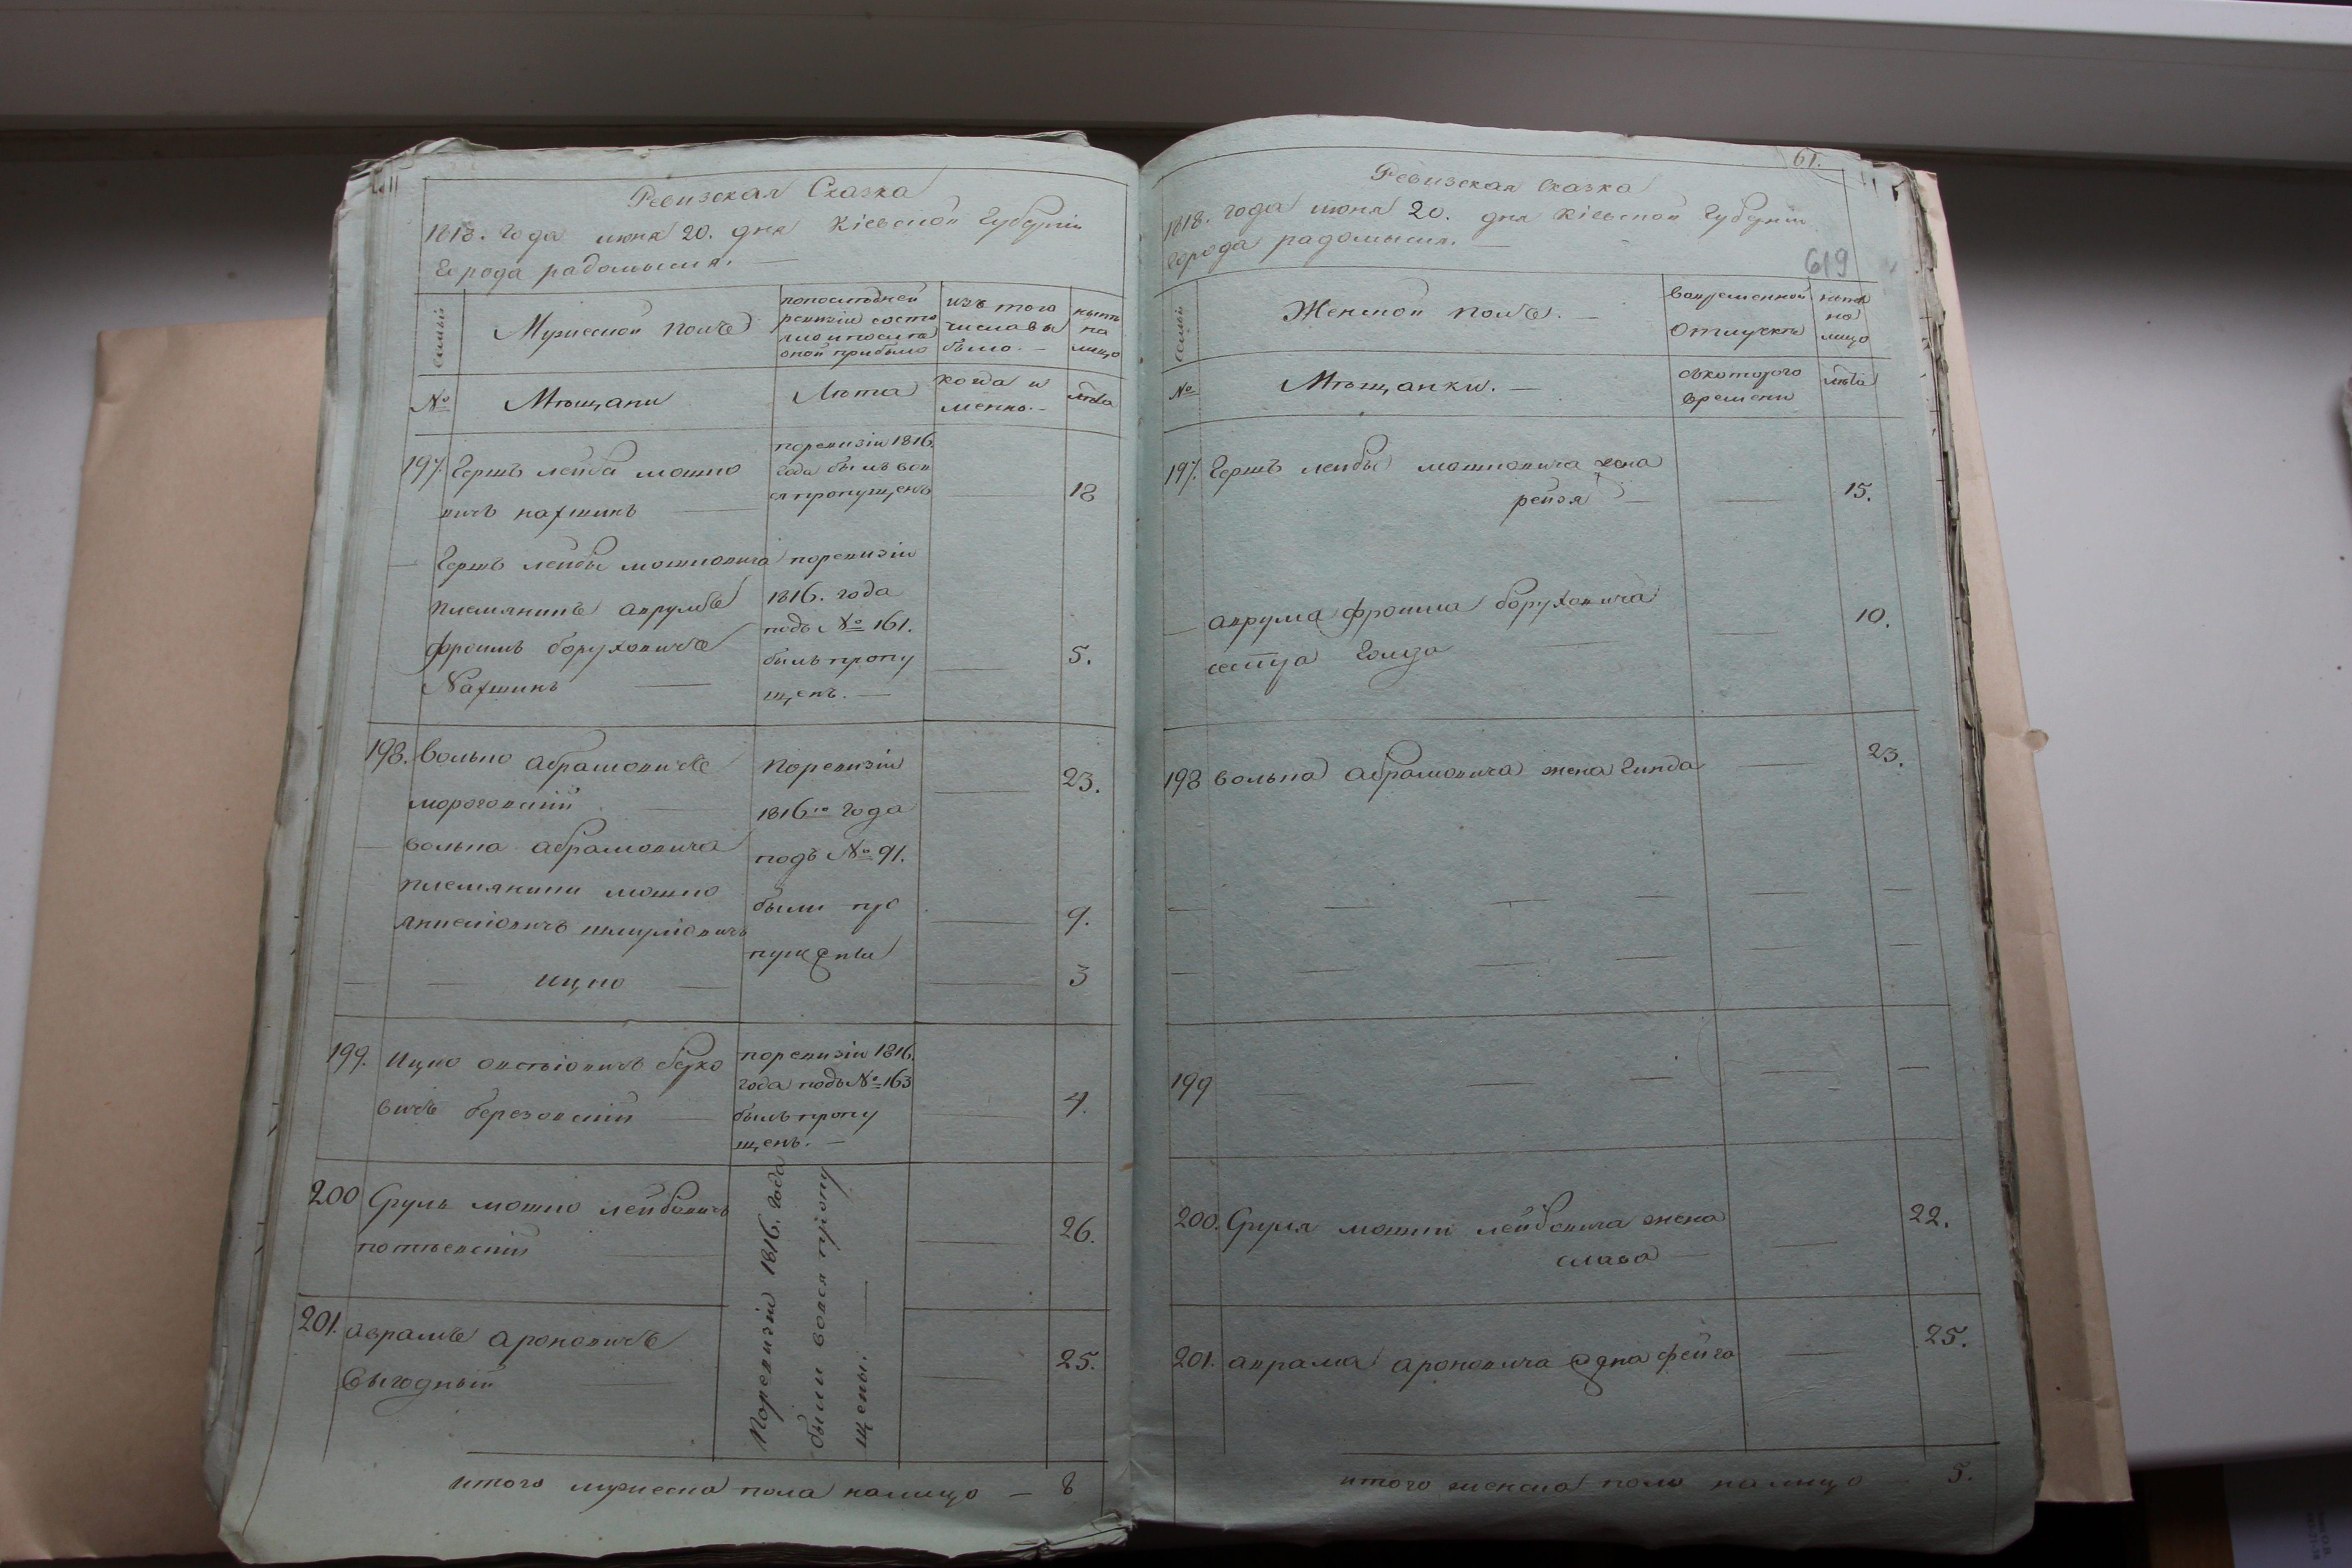 Ревизская Сказка
1818. года июня 20. дня Кіевской Губерніи
Города радомысля.
семьи
Мужеской полъ
попослѣдней
ревизіи состо
яло и после
оной прибыло
изъ того
числа вы
было.
нынѣ
на
лицо
№
Мѣщани
Лѣта
когда и
менно.
лѣта
197.
Гершъ лейба мошко
вичъ нахшинъ
поревизіи 1816.
года былъ вов
ся пропущенъ
18
Гершъ лейбы мошковича
племяникъ аврумъ
фроимъ боруховичъ
Нахшинъ
поревизіи
1816. года
подъ № 161.
былъ пропу
щенъ.
5.
198.
Волько абрамовичъ
мороговскій
Поревизіи
1816го года
23.
волька абрамовича
племяники мошко
шмулiовичъ
ицко
подъ № 91.
были про
пущены
9.
3
199.
Ицко овсѣіовичъ берко
вичъ березовскій
поревизіи 1816.
года подъ № 163
былъ пропу
щенъ.
4.
200
Сруль мошко лейбовичъ
26.
201.
аврамъ ароновичъ
Выгодный
25.
Поревизіи 1816. года
были вовся пропу
щены.
итого мужеска пола налицо — 8
61.
619
Ревизская Сказка
1818. года июня 20. дня Кіевской Губерніи
города радомысля.
семьи
Женской полъ.
вовременной
отлучкѣ
нынѣ
на
лицо
№
Мѣщанки.
съкоторого
времени
лѣта
197.
Гершъ лейбы мошковича жена
рейзя
15.
аврума фроима боруховича
сестра Голда
10.
198
волька абрамовича жена Гинда
23.
199
200.
Сруля мошки лейбовича жена
слава
22.
201.
аврама ароновича жена фейга
25.
итого женска пола налицо — 5.